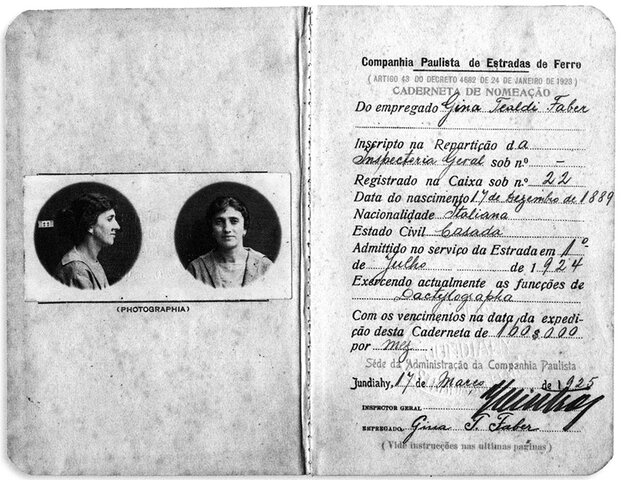 (PHOTOGRAPHIA)
Companhia Paulista de Estradas de Ferro
(ARTIGO 43 DO DECRETO 4682 DE 24 DE JANEIRO DE 1923)
CADERNETA DE NOMEAÇÃO
Do empregado Gina Tealdi Faber
Inscripto na Repartição da
Inspectoria Geral sob n.º -
Registrado na Caixa sob n.º 22
Data do nascimento 17 de Dezembro de 1889
Nacionalidade Italiana
Estado Civil Casada
Admittido no serviço da Estrada em 1º
de Julho de 1924
Exercendo actualmente as funcções de
Dactylographa
Com os vencimentos na data da expedi-
ção desta Caderneta de 100$000
por mez
Séde da Administração da Companhia Paulista
Jundiahy, 17 de Março de 1925
INSPECTOR GERAL
EMPREGADO, Gina T. Faber
(Vide instrucções nas ultimas paginas)